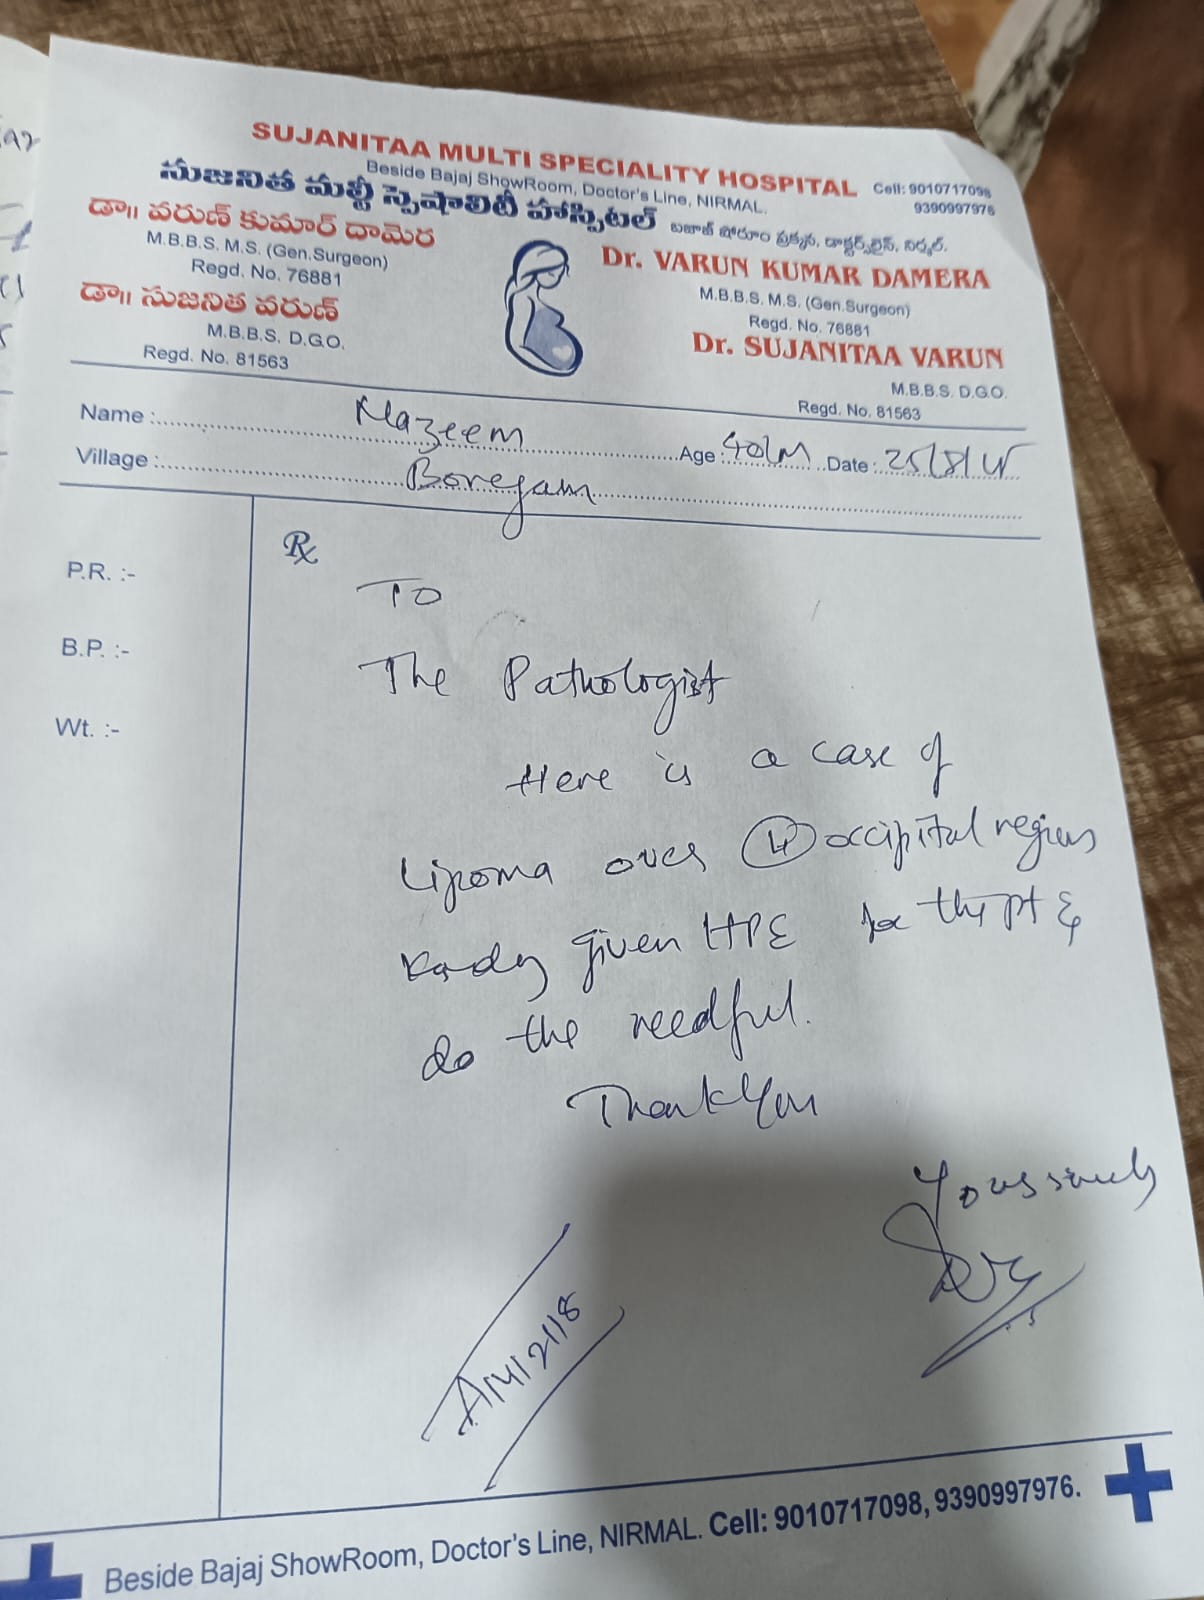 SUJANITAA MULTI SPECIALITY HOSPITAL
Beside Bajaj ShowRoom, Doctor's Line, NIRMAL.
Cell: 9010717098
9390997976
సుజనిత మల్టీ స్పెషాలిటీ హాస్పిటల్ బజాజ్ షోరూం ప్రక్కన, డాక్టర్స్‌లైన్, నిర్మల్.
డా॥ వరుణ్ కుమార్ దామెర
M.B.B.S. M.S. (Gen.Surgeon)
Regd. No. 76881
డా॥ సుజనిత వరుణ్
M.B.B.S. D.G.O.
Regd. No. 81563
Dr. VARUN KUMAR DAMERA
M.B.B.S. M.S. (Gen.Surgeon)
Regd. No. 76881
Dr. SUJANITAA VARUN
M.B.B.S. D.G.O.
Regd. No. 81563
Name : Nazeem Age : 40/M Date : 25/8/25
Village : Boregam
P.R. :-
B.P. :-
Wt. :-
℞
To
The Pathologist
Here is a case of
Lipoma over (Lt) occipital region
Kindly given HPE for the pt &
do the needful.
Thank You
Yours sincerely
Beside Bajaj ShowRoom, Doctor's Line, NIRMAL. Cell: 9010717098, 9390997976.